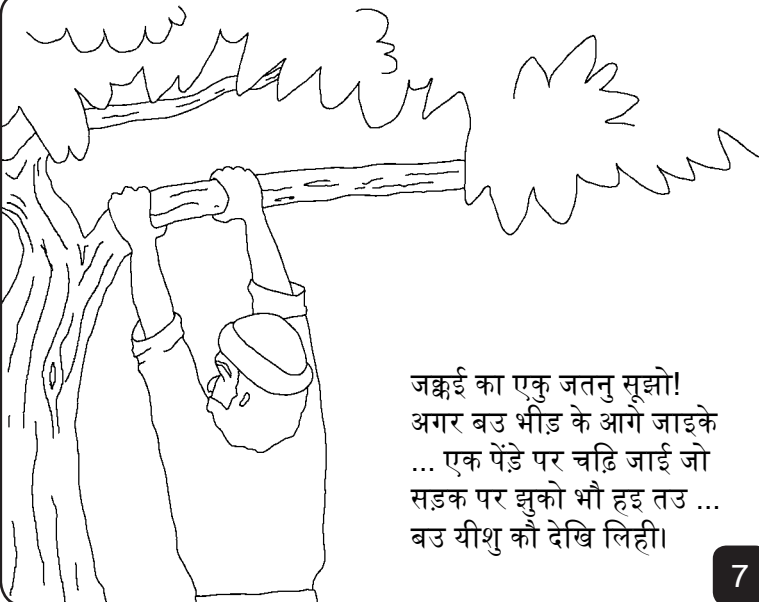 जक्कई का एकु जतनु सूझो!
अगर बउ भीड़ के आगे जाइके
... एक पेंड़े पर चढ़ि जाई जो
सड़क पर झुको भौ हइ तउ ...
बउ यीशु कौ देखि लिही।
7